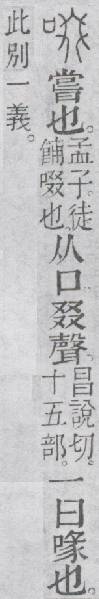 啜嘗也。孟子。徒餔啜也。从口叕聲。昌說切。十五部。一曰喙也。
此別一義。